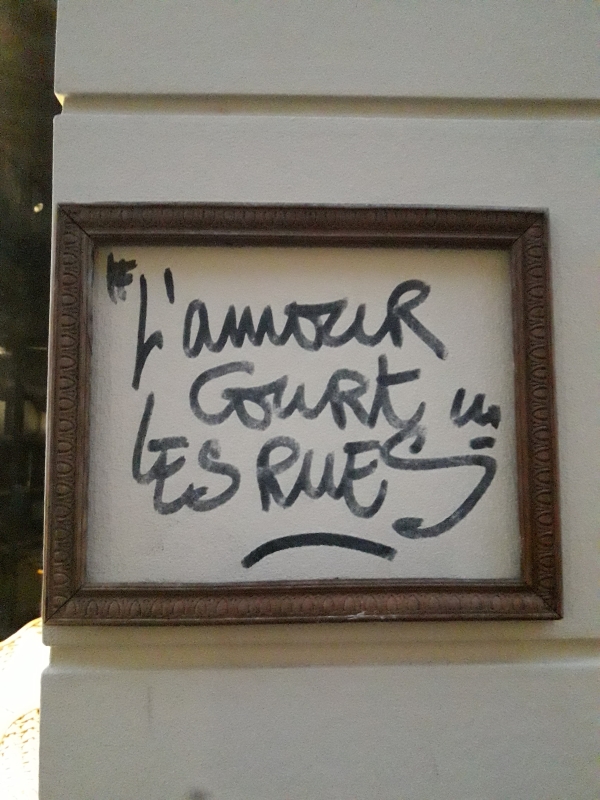 "L'amour
Court
LES RUES"